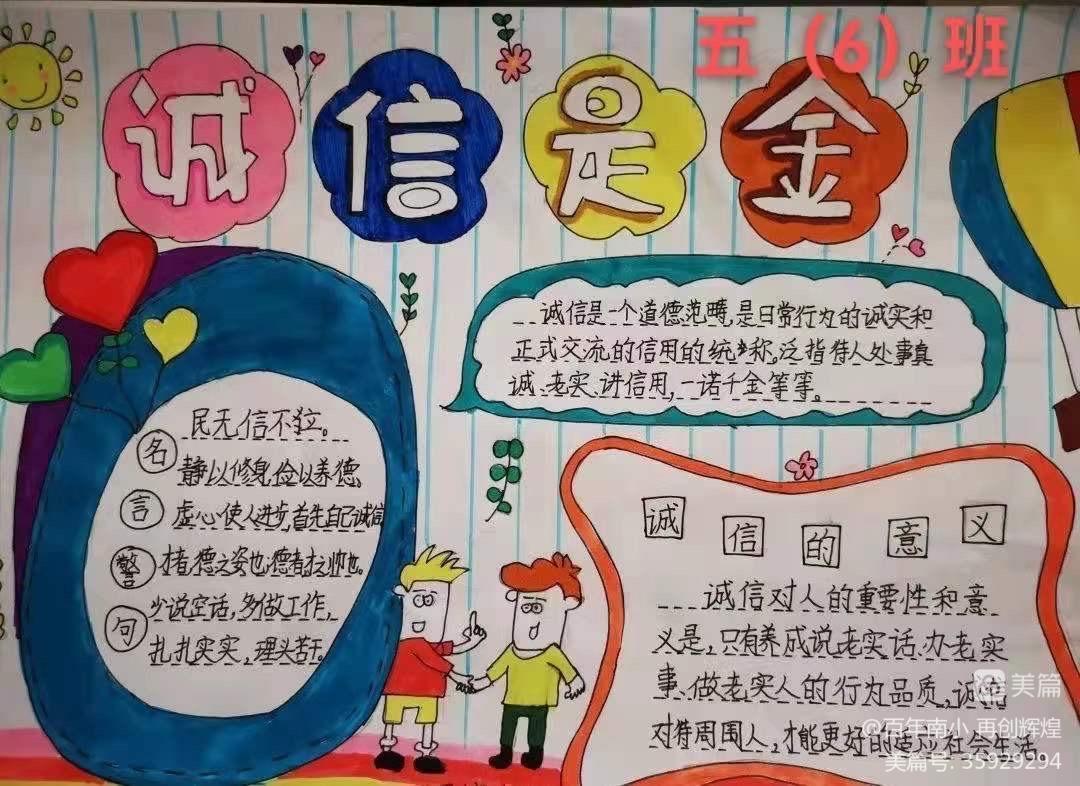 五（6）班
诚信是金
诚信是一个道德范畴,是日常行为的诚实和
正式交流的信用的统称,泛指待人处事真
诚、老实、讲信用,一诺千金等等。
名言警句
民无信不立。
静以修身,俭以养德
虚心使人进步,首先自己诚信
才者,德之资也;德者,才之帅也。
少说空话,多做工作,
扎扎实实,埋头苦干。
诚信的意义
诚信对人的重要性和意
义是,只有养成说老实话、办老实
事、做老实人的行为品质,诚信
对待周围人,才能更好的适应社会生活。
美篇
@百年南小 再创辉煌
美篇号: 35929294